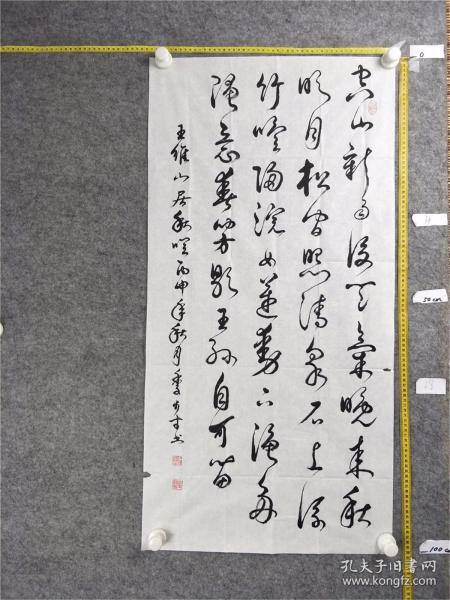 空山新雨後天氣晚來秋
明月松間照清泉石上流
竹喧歸浣女蓮動下漁舟
隨意春芳歇王孫自可留
王維山居秋暝丙申年秋月
0
50cm
100c
孔夫子旧书网
www.kongfz.com